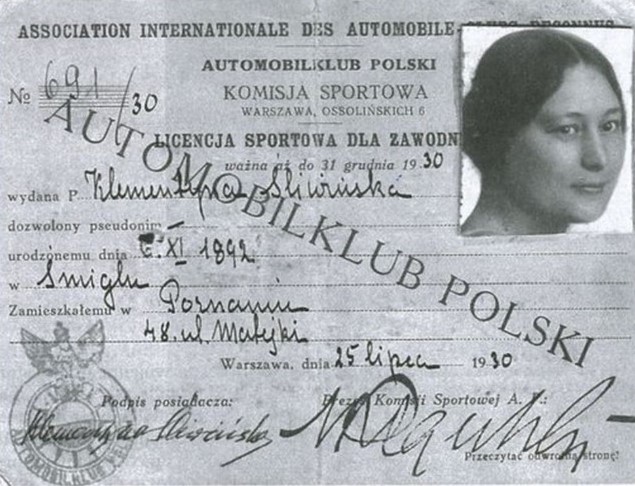 ASSOCIATION INTERNATIONALE DES AUTOMOBILE-CLUBS RECONNUS
AUTOMOBILKLUB POLSKI
KOMISJA SPORTOWA
WARSZAWA, OSSOLIŃSKICH 6
№ 691/30
LICENCJA SPORTOWA DLA ZAWODN
ważna aż do 31 grudnia 1930
wydana P. Klementyna Śliwińska
dozwolony pseudonim —
urodzonemu dnia XI 1892
w Śmiglu
Zamieszkałemu w Poznaniu
48. ul. Matejki
Warszawa, dnia 25 lipca 1930
Podpis posiadacza: Prezes Komisji Sportowej A. P.:
Klementyna Śliwińska
Przeczytać odwrotną stronę!
AUTOMOBILKLUB POLSKI
AUTOMOBILKLUB